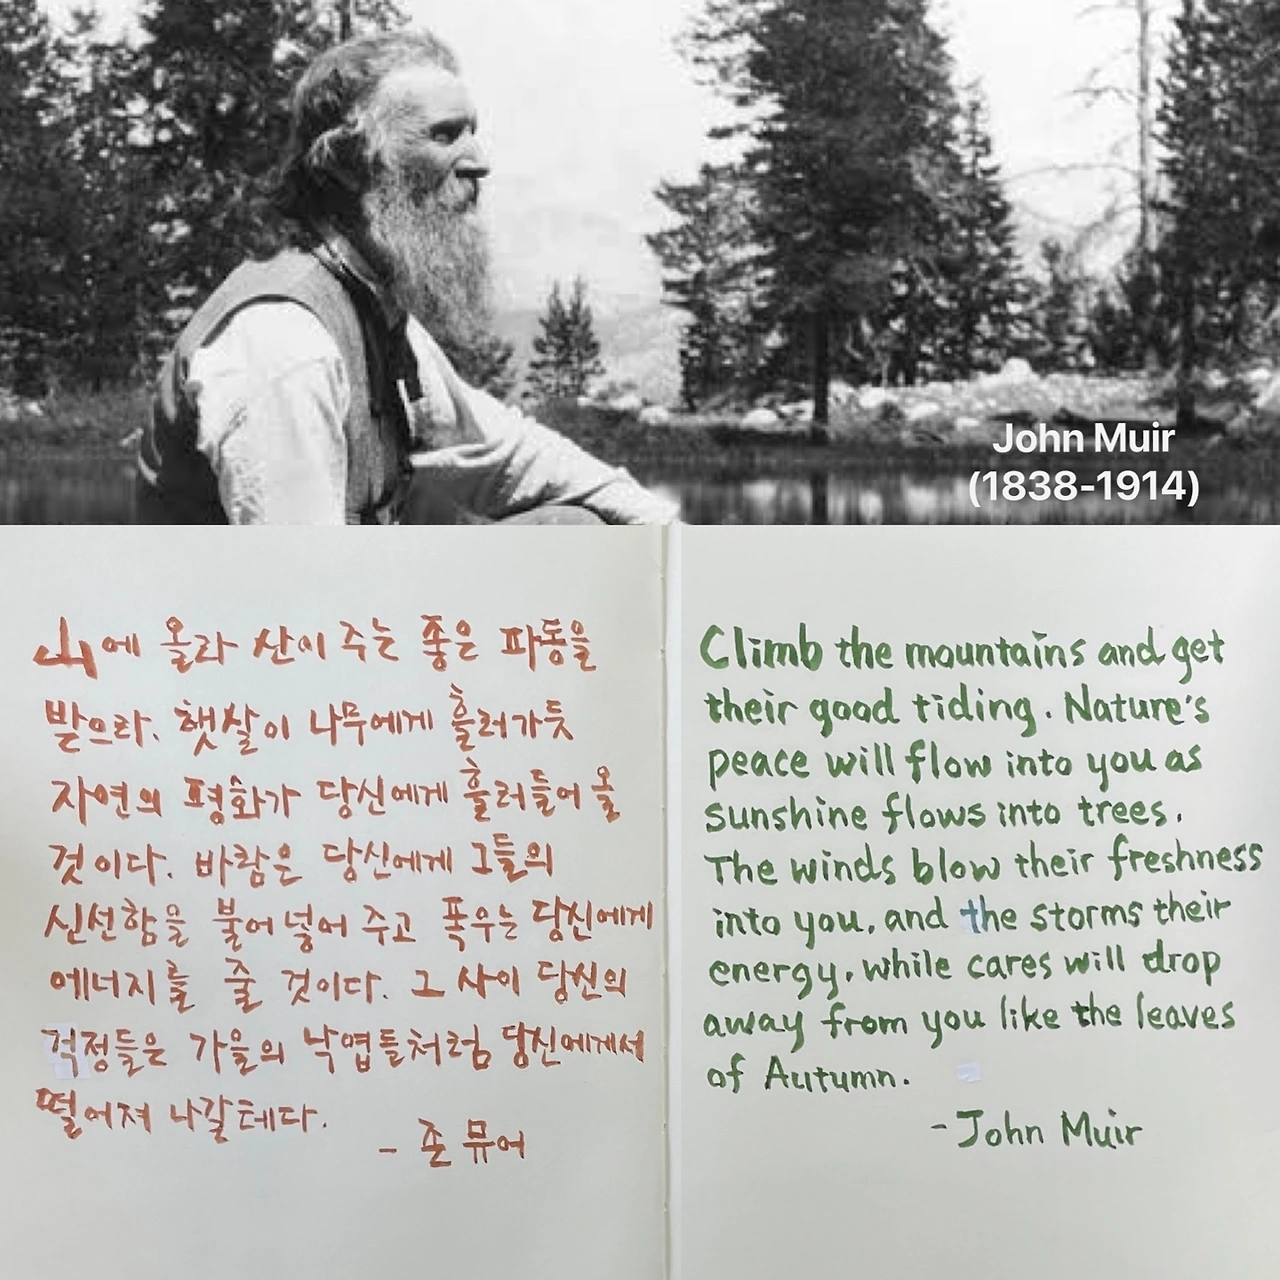 John Muir
(1838-1914)
山에 올라 산이 주는 좋은 파동을
받으라. 햇살이 나무에게 흘러가듯
자연의 평화가 당신에게 흘러들어 올
것이다. 바람은 당신에게 그들의
신선함을 불어넣어 주고 폭우는 당신에게
에너지를 줄 것이다. 그 사이 당신의
걱정들은 가을의 낙엽들처럼 당신에게서
떨어져 나갈테다.
- 존 뮤어
Climb the mountains and get
their good tiding. Nature's
peace will flow into you as
sunshine flows into trees.
The winds blow their freshness
into you, and the storms their
energy, while cares will drop
away from you like the leaves
of Autumn.
- John Muir